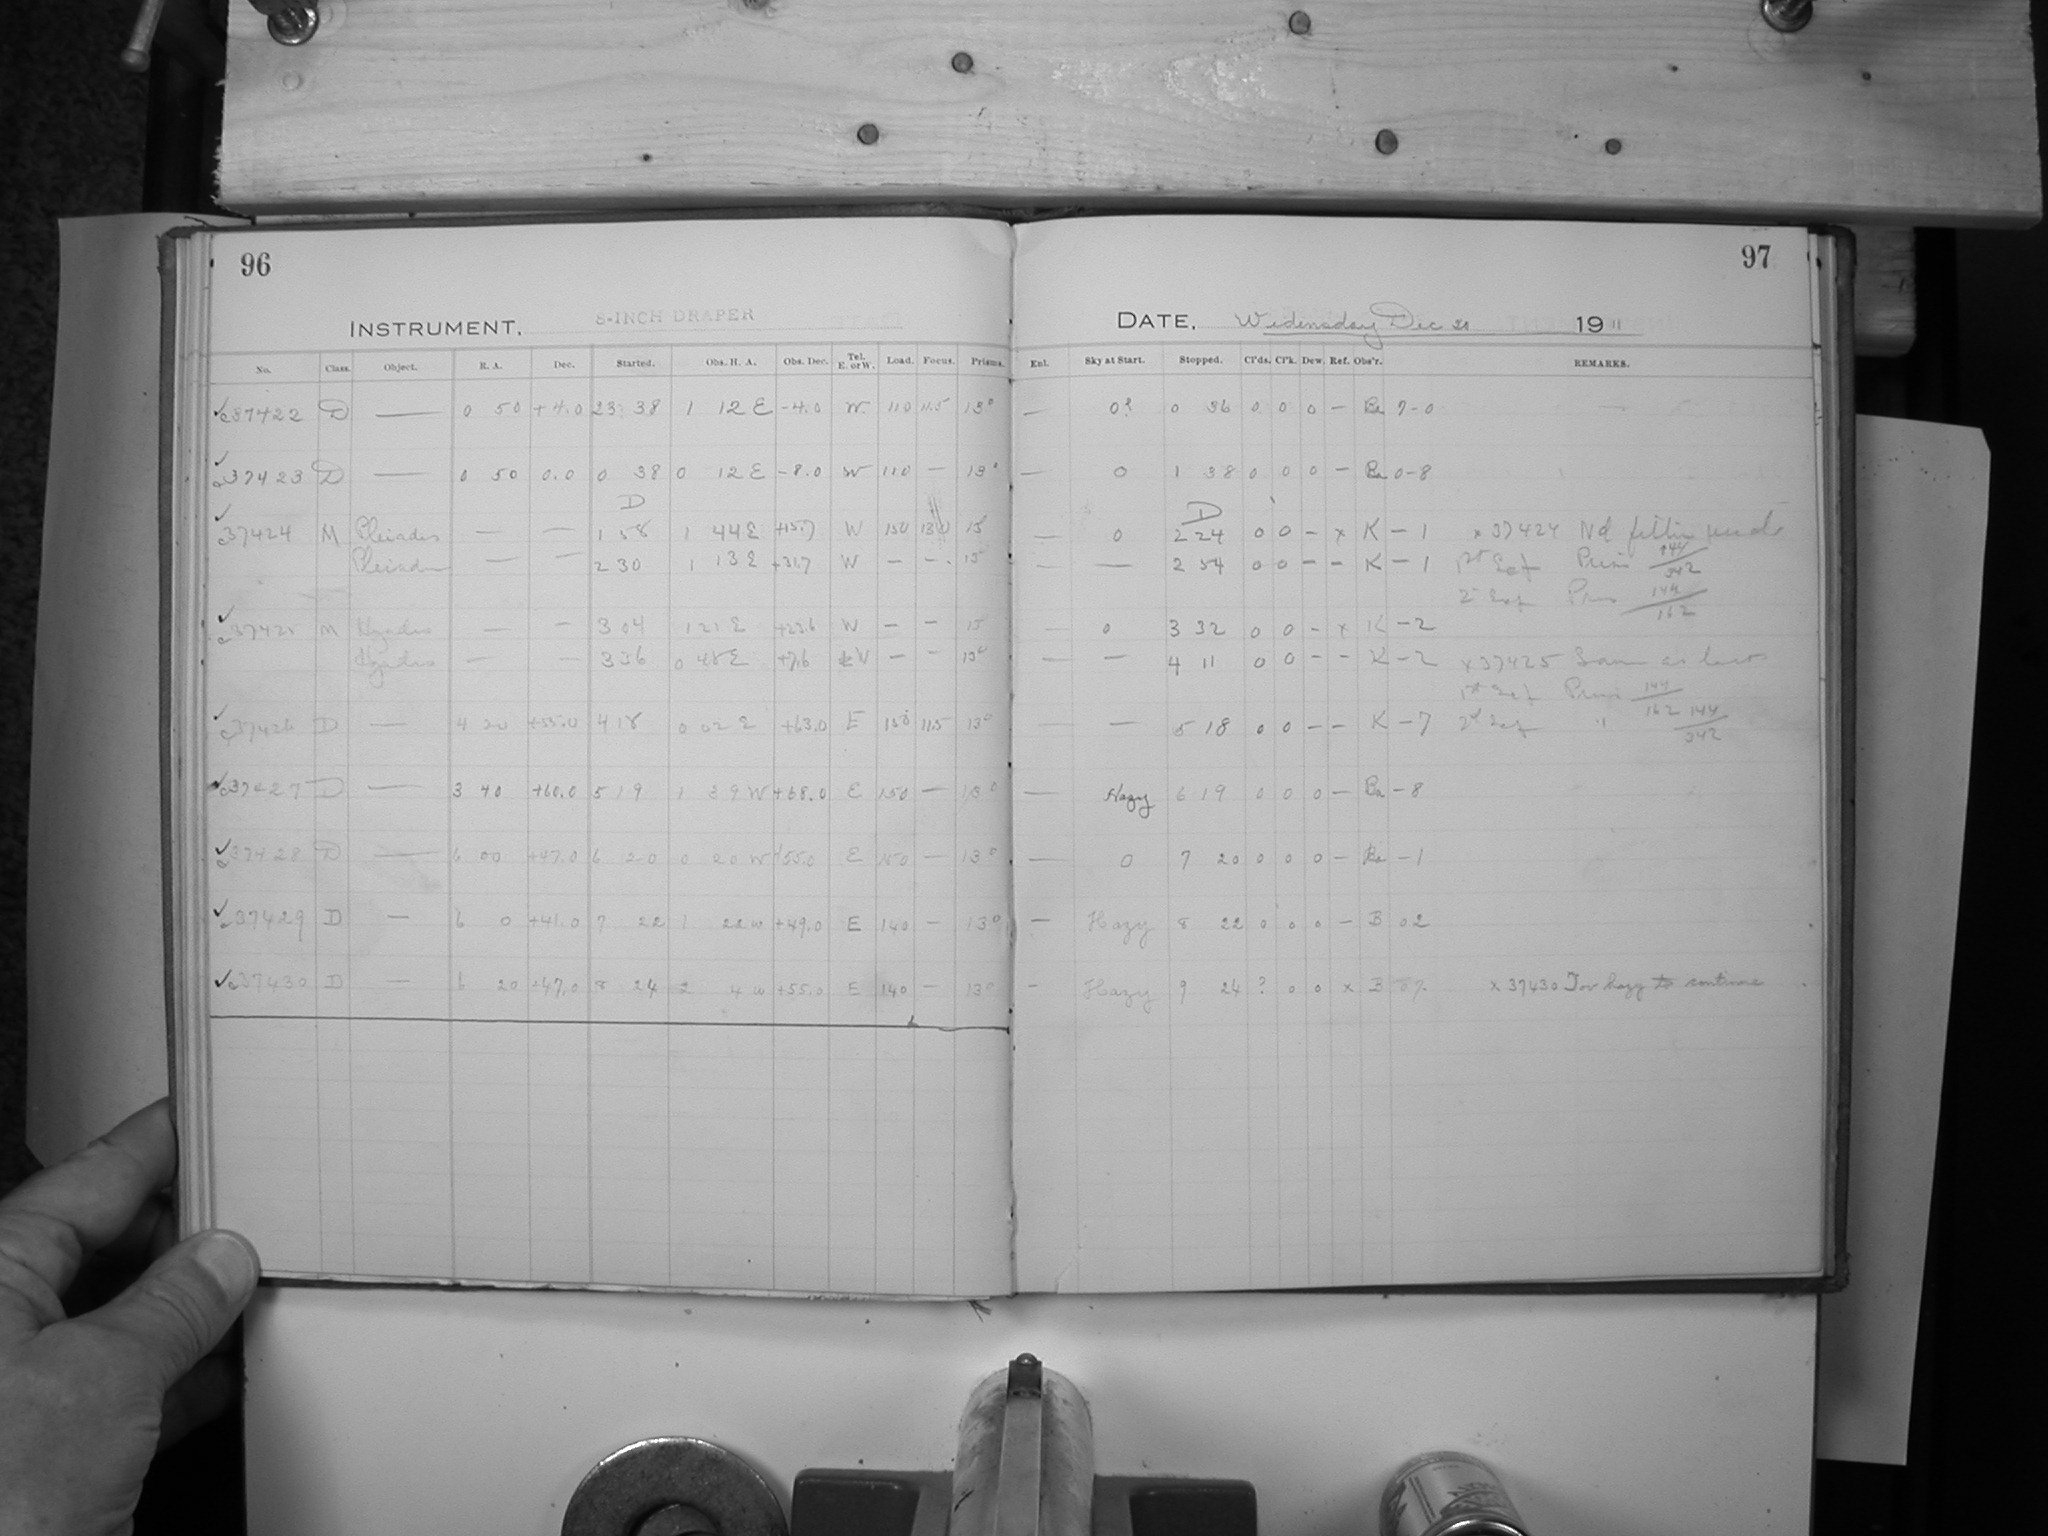 96
INSTRUMENT, 8-INCH DRAPER
No. Class. Object. R. A. Dec. Started. Obs. H. A. Obs. Dec. Tel. E. or W. Load. Focus. Prisms.
37422 D — 0 50 +4.0 23 38 1 12 E -4.0 W 110 11.5 13°
37423 D — 0 50 0.0 0 38 0 12 E -8.0 W 110 — 13°
D
37424 M Pleiades — — 1 58 1 44 E +15.7 W 150
Pleiades — — 2 30 1 13 E +31.7 W — — 15°
37425 M Hyades — — 3 04 1 21 E +23.6 W — — 15
Hyades — — 3 36 0 48 E +7.6 W — — 15°
37426 D — 4 20 +55.0 4 18 0 02 E +63.0 E 150 11.5 13°
37427 D — 3 40 +60.0 5 19 1 39 W +68.0 E 150 — 13°
37428 D — 6 00 +47.0 6 20 0 20 W +55.0 E 150 — 13°
37429 D — 6 0 +41.0 7 22 1 22 W +49.0 E 140 — 13°
37430 D — 6 20 +47.0 8 24 2 4 W +55.0 E 140 — 13°
97
DATE, Wedensday Dec 20 1911
Enl. Sky at Start. Stopped. Cl'ds. Cl'k. Dew. Ref. Obs'r. REMARKS.
— 0? 0 36 0 0 0 — Ba 7-0
— 0 1 38 0 0 0 — Ba 0-8
D
— 0 2 24 0 0 – x K – 1 x 37424
— — 2 54 0 0 – – K – 1 1st Exp Prism 144/342
2 Exp Prism 144/162
— 0 3 32 0 0 – x K – 2
— — 4 11 0 0 – – K – 2 x 37425 Same as
1st Exp Prism 144/162
— — 5 18 0 0 – – K – 7 2d Exp " 144/342
— Hazy 6 19 0 0 0 — Ba – 8
— 0 7 20 0 0 0 — Ba – 1
— Hazy 8 22 0 0 0 — B 02
— Hazy 9 24 ? 0 0 x B x 37430 Too hazy to continue